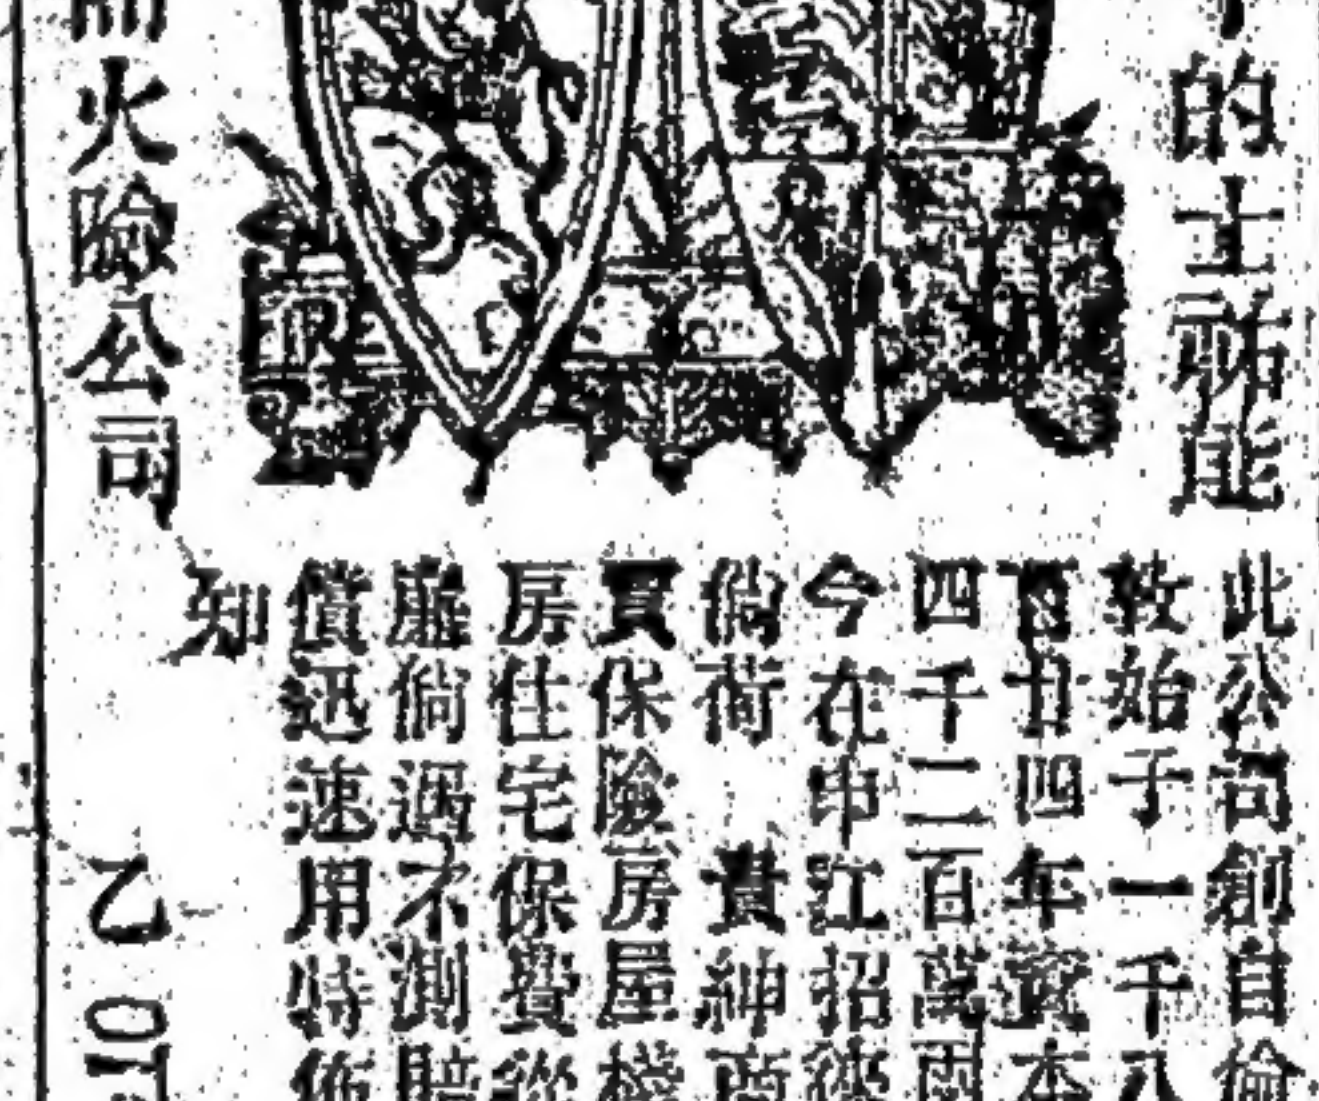 的士祐能
此公司創自倫
敦始于一千八
百廿四年資本
四千二百萬兩
今在申江招徠
倘荷 貴紳商
買保險房屋棧
房住宅保費從
廉倘遇不測賠
償迅速用特佈
知
火險公司
乙